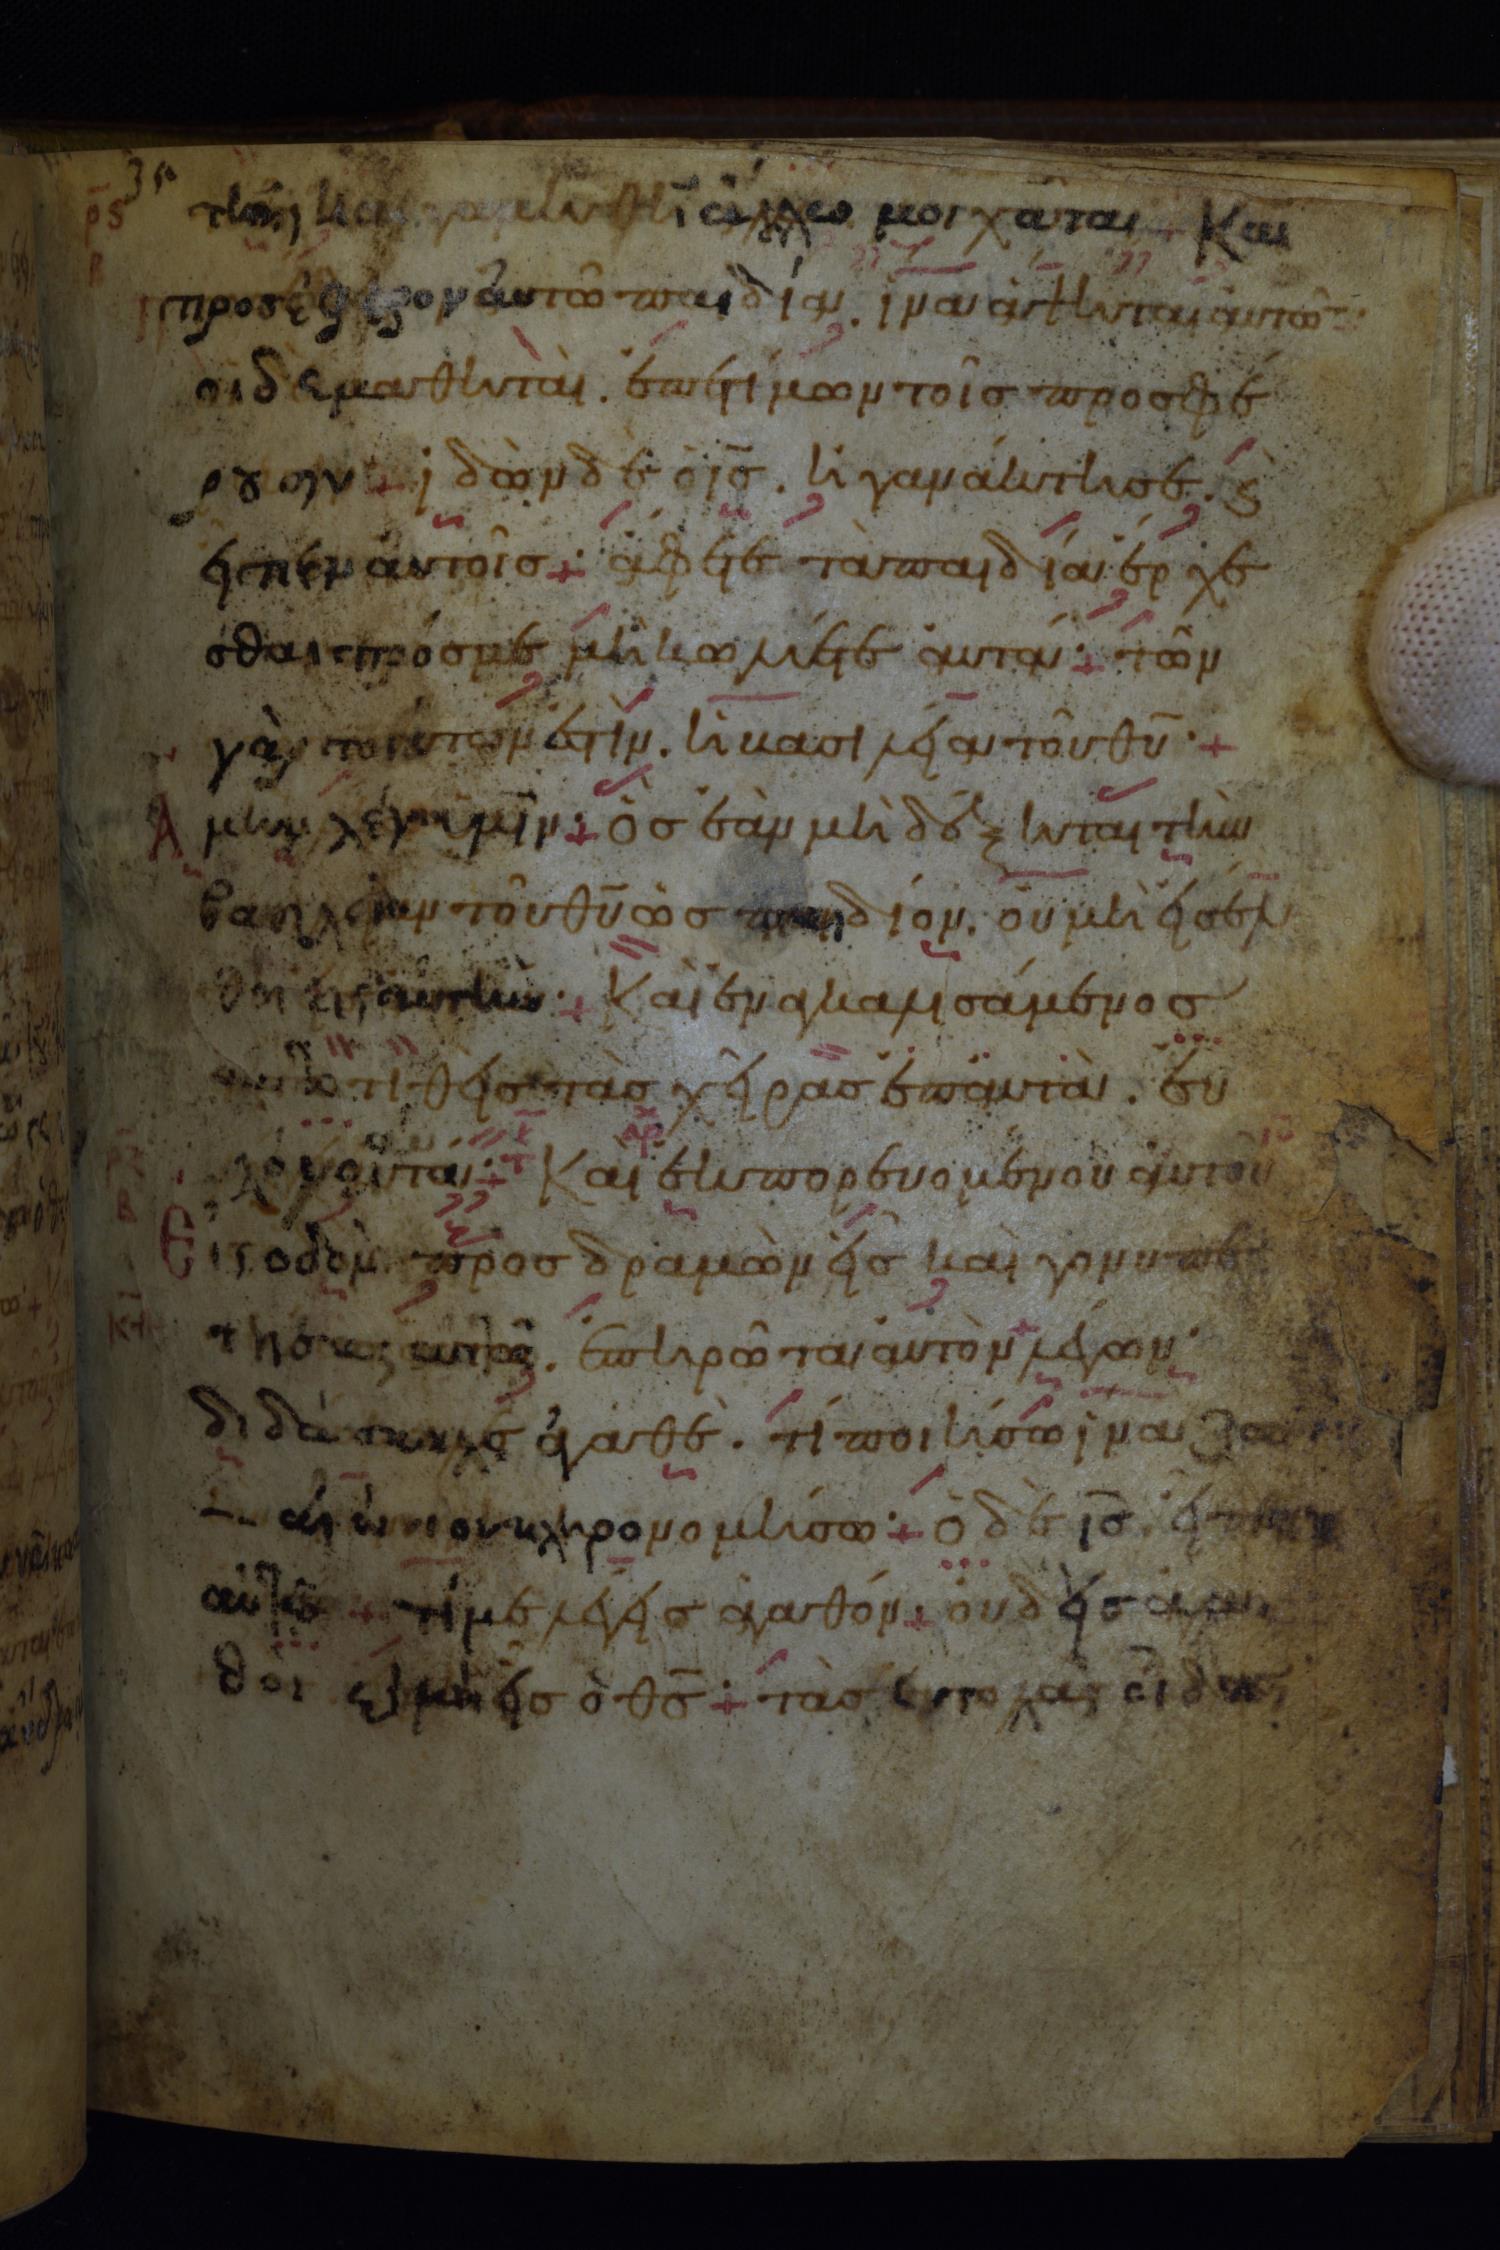 της και γαμηθη αλλω μοιχαται + Και
προσέφερον αυτῶ παιδία. ἵνα ἅψηται αὐτῶν·
οι δε μαθηταὶ. ἐπετίμων τοῖς προσφέ
ρουσιν + ἰδὼν δὲ ὁ ι̅ς̅. ἠγανάκτησε. κ̀
εἶπεν αὐτοῖς + ἄφετε τὰ παιδία ἔρχε
σθαι πρός με μὴ κωλύετε αὐτά· + τῶν
γὰρ τοιούτων ἐστὶν. ἡ βασιλεία τοῦ θ̅υ̅· +
Ἀμὴν λέγω ὑμῖν· + ὃς ἐὰν μὴ δέξηται τὴν
βασιλείαν τοῦ θ̅υ̅ ὡς παιδίον. οὐ μὴ εἰσέλ
θη εἰς αὐτὴν· + Καὶ ἐναγκαλισάμενος
τιθεὶς τὰς χεῖρας ἐπ αὐτὰ. ευ
λογεῖ αυτά· + Και ἐκπορευομένου αὐτοῦ
Εἰς οδὸν προσδραμὼν εἷς καὶ γονυπε
τήσας αυτὸν. ἐπηρώτα αὐτὸν λέγων·
διδάσκαλε ἀγαθὲ. τί ποιήσω ἵνα ζωὴν
αἰώνιον κληρονομήσω· + ὁ δὲ ι̅ς̅. εἶπεν
αὐτῶ + τί με λέγεις ἀγαθόν· + οὐδεὶς ἀγα
θὸς εἰ μὴ εἷς ὁ θ̅ς̅· + τὰς ἐντολὰς οἶδας